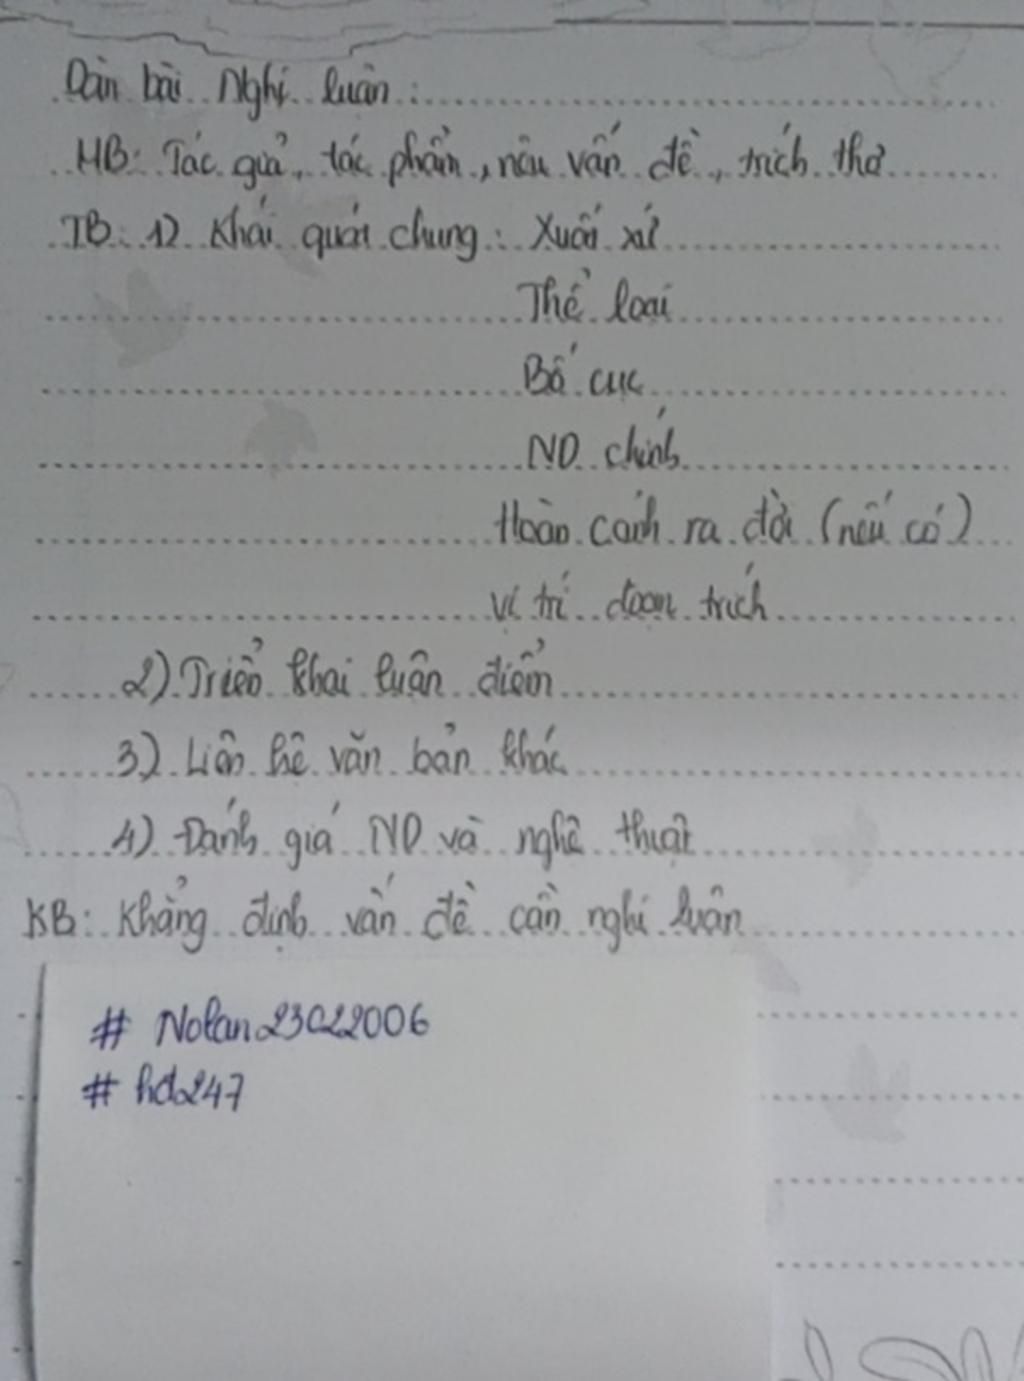 Dàn bài Nghị luận:
MB: Tác giả, tác phẩm, nêu vấn đề, trích thơ
TB: 1) Khái quát chung: Xuất xứ
Thể loại
Bố cục
ND chính
Hoàn cảnh ra đời (nếu có)
Vị trí đoạn trích
2) Triển khai luận điểm
3) Liên hệ văn bản khác
4) Đánh giá ND và nghệ thuật
KB: Khẳng định vấn đề cần nghị luận
# Nolan23022006
# hd247